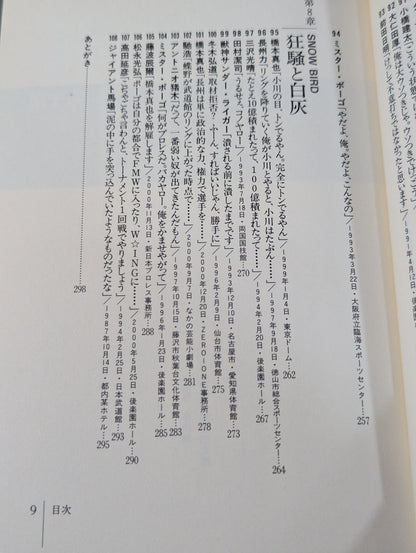 94 ミスター・ポーゴ「やだよ、俺。やだよ、こんなの」／1993年3月22日・大阪府立臨海スポーツセンター… 257
第8章
SNOW BIRD
狂騒と白灰
95 橋本真也「小川の目、トンでるやん。完全にトンでるやん」／1999年1月4日・東京ドーム… 262
96 長州力「リングを降りない俺が小川とやると、小川はたぶん……」／1997年9月18日・徳山市総合スポーツセンター… 264
97 三沢光晴「たとえ1億積まれたって、100億積まれたって……」／1994年2月20日・後楽園ホール… 267
98 田村潔司「うるせえ、コノヤロー」／1993年7月18日・両国国技館… 270
99 獣神サンダー・ライガー「潰される前に潰したまでです」／1993年12月10日・名古屋市・愛知県体育館… 273
100 冬木弘道「取材拒否？ふーん、すればいいじゃん、勝手に」／1996年12月9日・仙台市体育館… 275
101 橋本真也「長州は単に政治的な力、権力で選手を……」／2000年12月20日・ZERO-ONE事務所… 278
102 馳浩「蝶野が武道館のリングに上がった時点で……」／2000年9月7日・なかの芸能小劇場… 281
103 アントニオ猪木「だって、一番弱い奴が出てきたんだもん」／1997年10月15日・藤沢市秋葉台文化体育館… 283
104 ミスター・ポーゴ「何がプロレスだ。バカヤロー。俺をかませやがって」／1996年1月23日・後楽園ホール… 285
105 藤波辰爾「橋本真也を解雇します」／2000年11月13日・新日本プロレス事務所… 288
106 松永光弘「ポーゴは自分の都合でFMWに入ったり、W☆INGに……」／2000年5月25日・後楽園ホール… 290
107 高田延彦「ごちゃごちゃ言わんと、トーナメント1回戦でやりましょう」／1994年2月25日・日本武道館… 293
108 ジャイアント馬場「泥の中に手を突っ込んでいたようなものだったな」／1987年10月14日・都内某ホテル… 295
あとがき… 298
9 目次